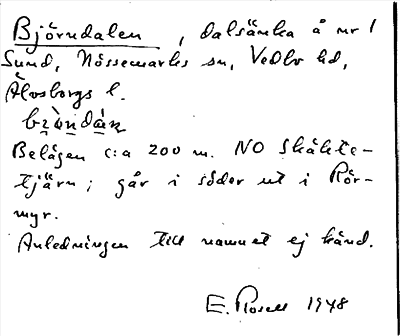 Björndalen, dalsänka å nr 1
Sund, Nössemarks sn, Vedbo hd,
Älvsborgs l.
bz̀ǹdán
Belägen c:a 200 m. NO Skäkte-
tjärn; går i söder ut i Rör-
myr.
Anledningen till namnet ej känd.
E. Rosell 1948